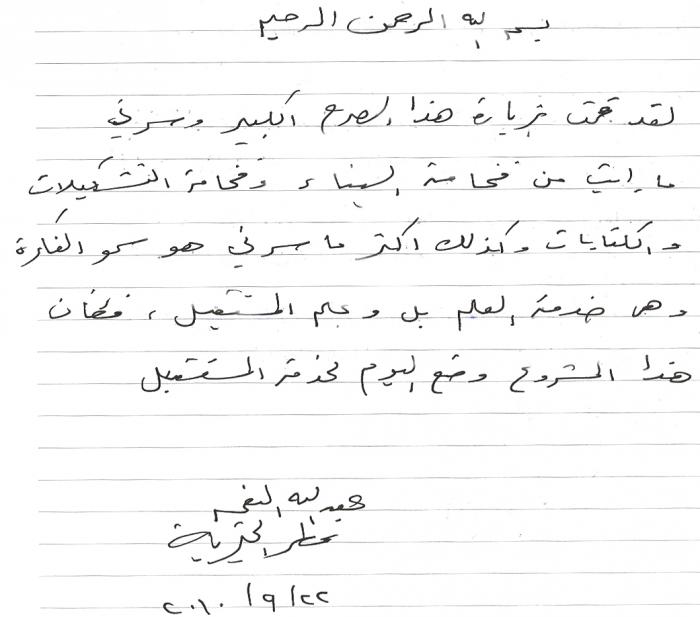 بسم الله الرحمن الرحيم
لقد قمت بزيارة هذا الصرح الكبير وسرني
ما رأيت من فخامة البناء وفخامة التشكيلات
والكتابات وكذلك اكثر ما سرني هو سمو الفكرة
وهي خدمة العلم بل وعلم المستقبل ، فكان
هذا المشروع وضع اليوم لخدمة المستقبل
عبد الله
٢٢/٩/٢٠١٠